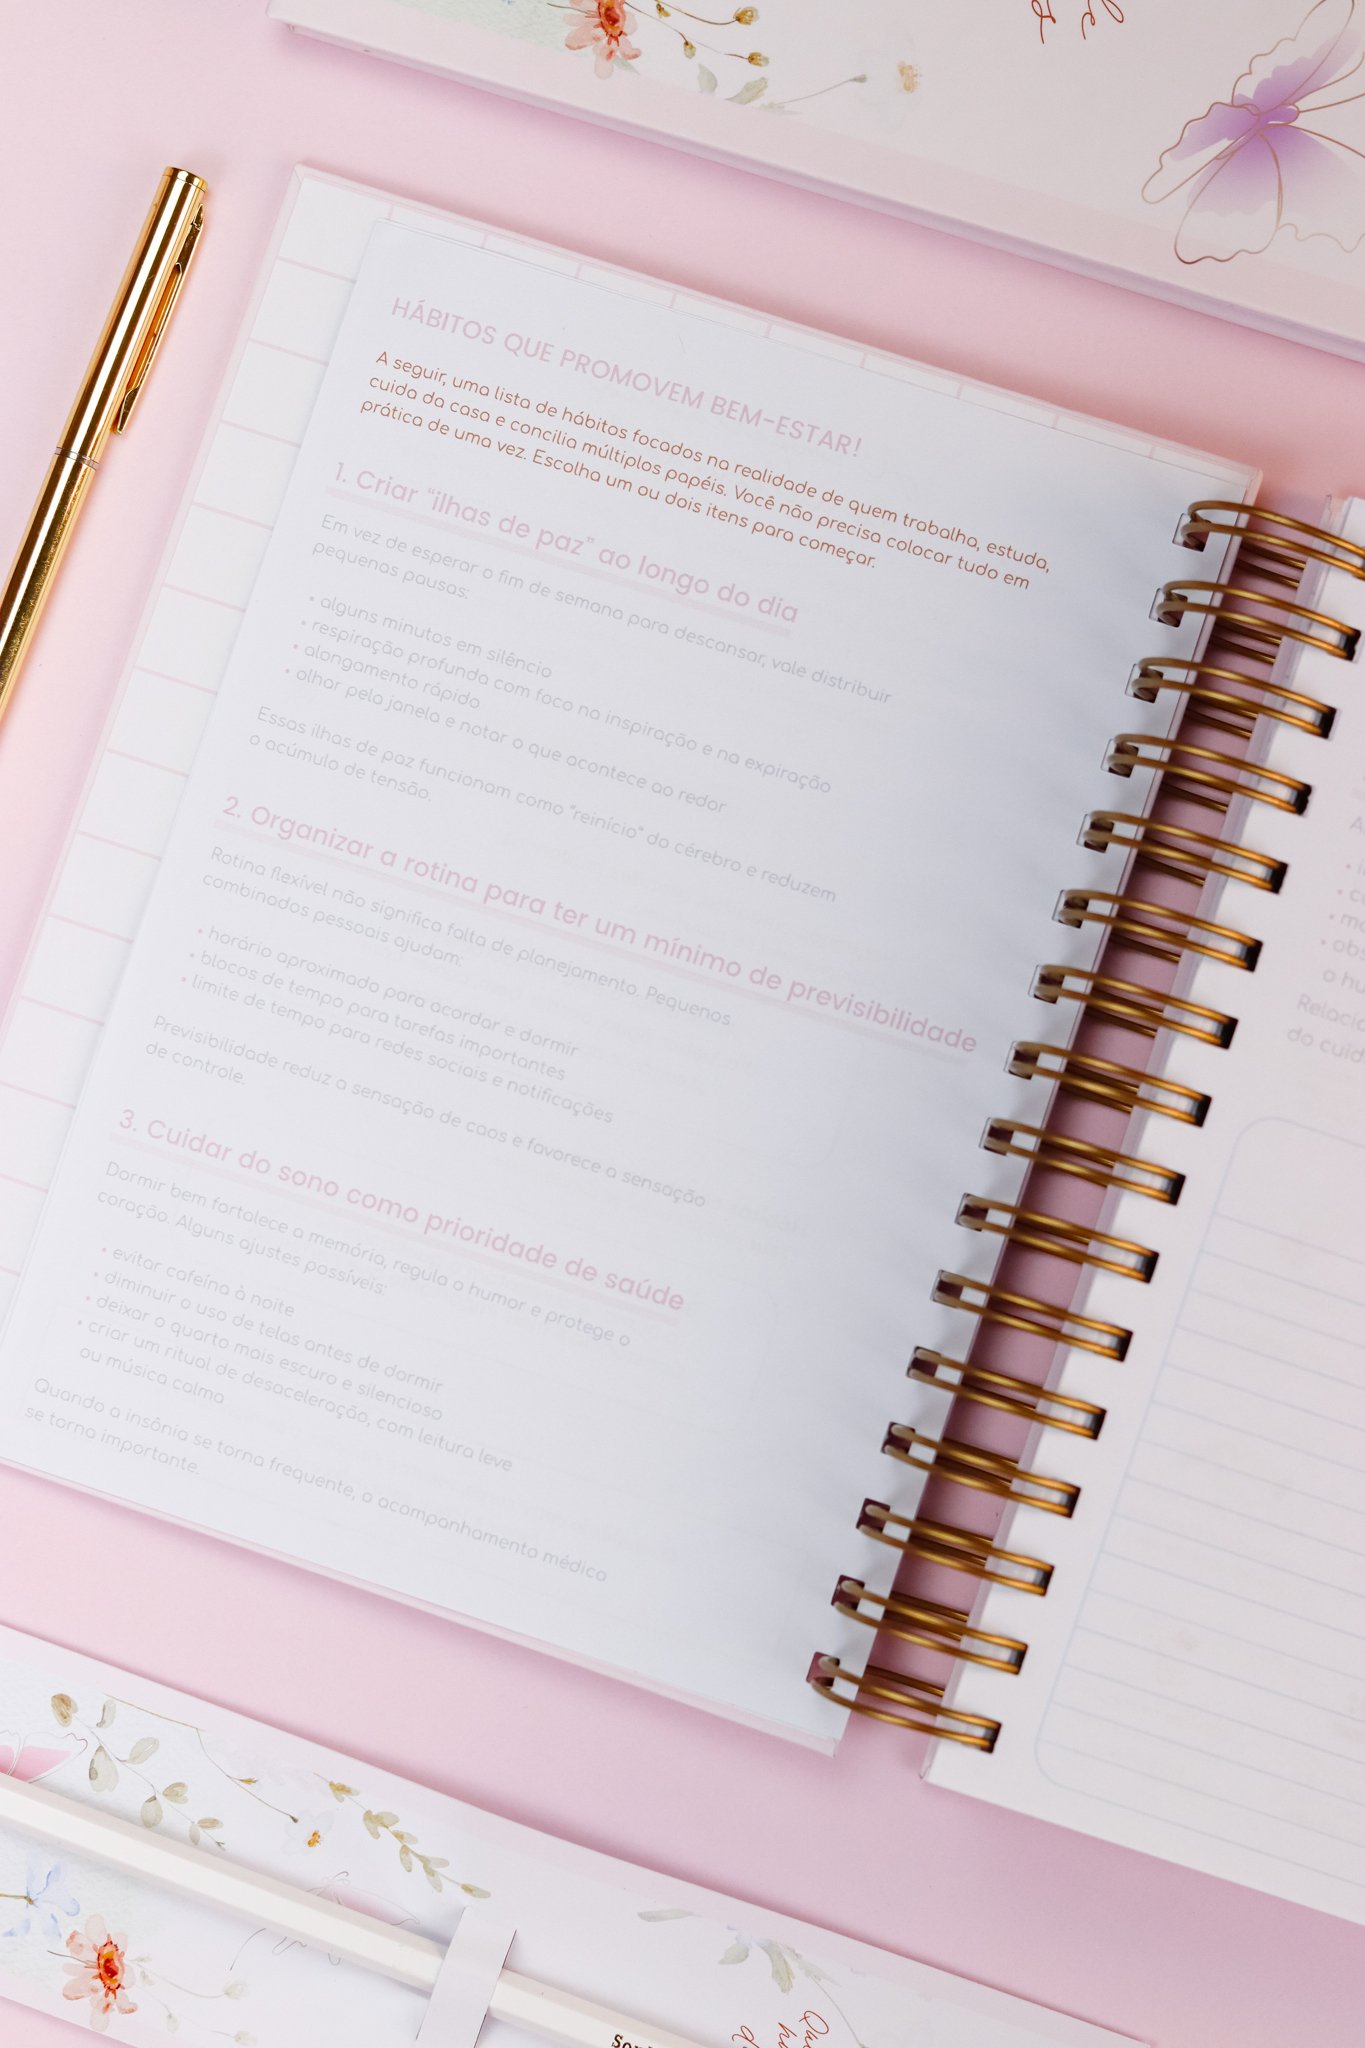 HÁBITOS QUE PROMOVEM BEM-ESTAR!
A seguir, uma lista de hábitos focados na realidade de quem trabalha, estuda,
cuida da casa e concilia múltiplos papéis. Você não precisa colocar tudo em
prática de uma vez. Escolha um ou dois itens para começar.
1. Criar “ilhas de paz” ao longo do dia
Em vez de esperar o fim de semana para descansar, vale distribuir
pequenas pausas:
• alguns minutos em silêncio
• respiração profunda com foco na inspiração e na expiração
• alongamento rápido
• olhar pela janela e notar o que acontece ao redor
Essas ilhas de paz funcionam como “reinício” do cérebro e reduzem
o acúmulo de tensão.
2. Organizar a rotina para ter um mínimo de previsibilidade
Rotina flexível não significa falta de planejamento. Pequenos
combinados pessoais ajudam:
• horário aproximado para acordar e dormir
• blocos de tempo para tarefas importantes
• limite de tempo para redes sociais e notificações
Previsibilidade reduz a sensação de caos e favorece a sensação
de controle.
3. Cuidar do sono como prioridade de saúde
Dormir bem fortalece a memória, regula o humor e protege o
coração. Alguns ajustes possíveis:
• evitar cafeína à noite
• diminuir o uso de telas antes de dormir
• deixar o quarto mais escuro e silencioso
• criar um ritual de desaceleração, com leitura leve
ou música calma
Quando a insônia se torna frequente, o acompanhamento médico
se torna importante.
do cuid